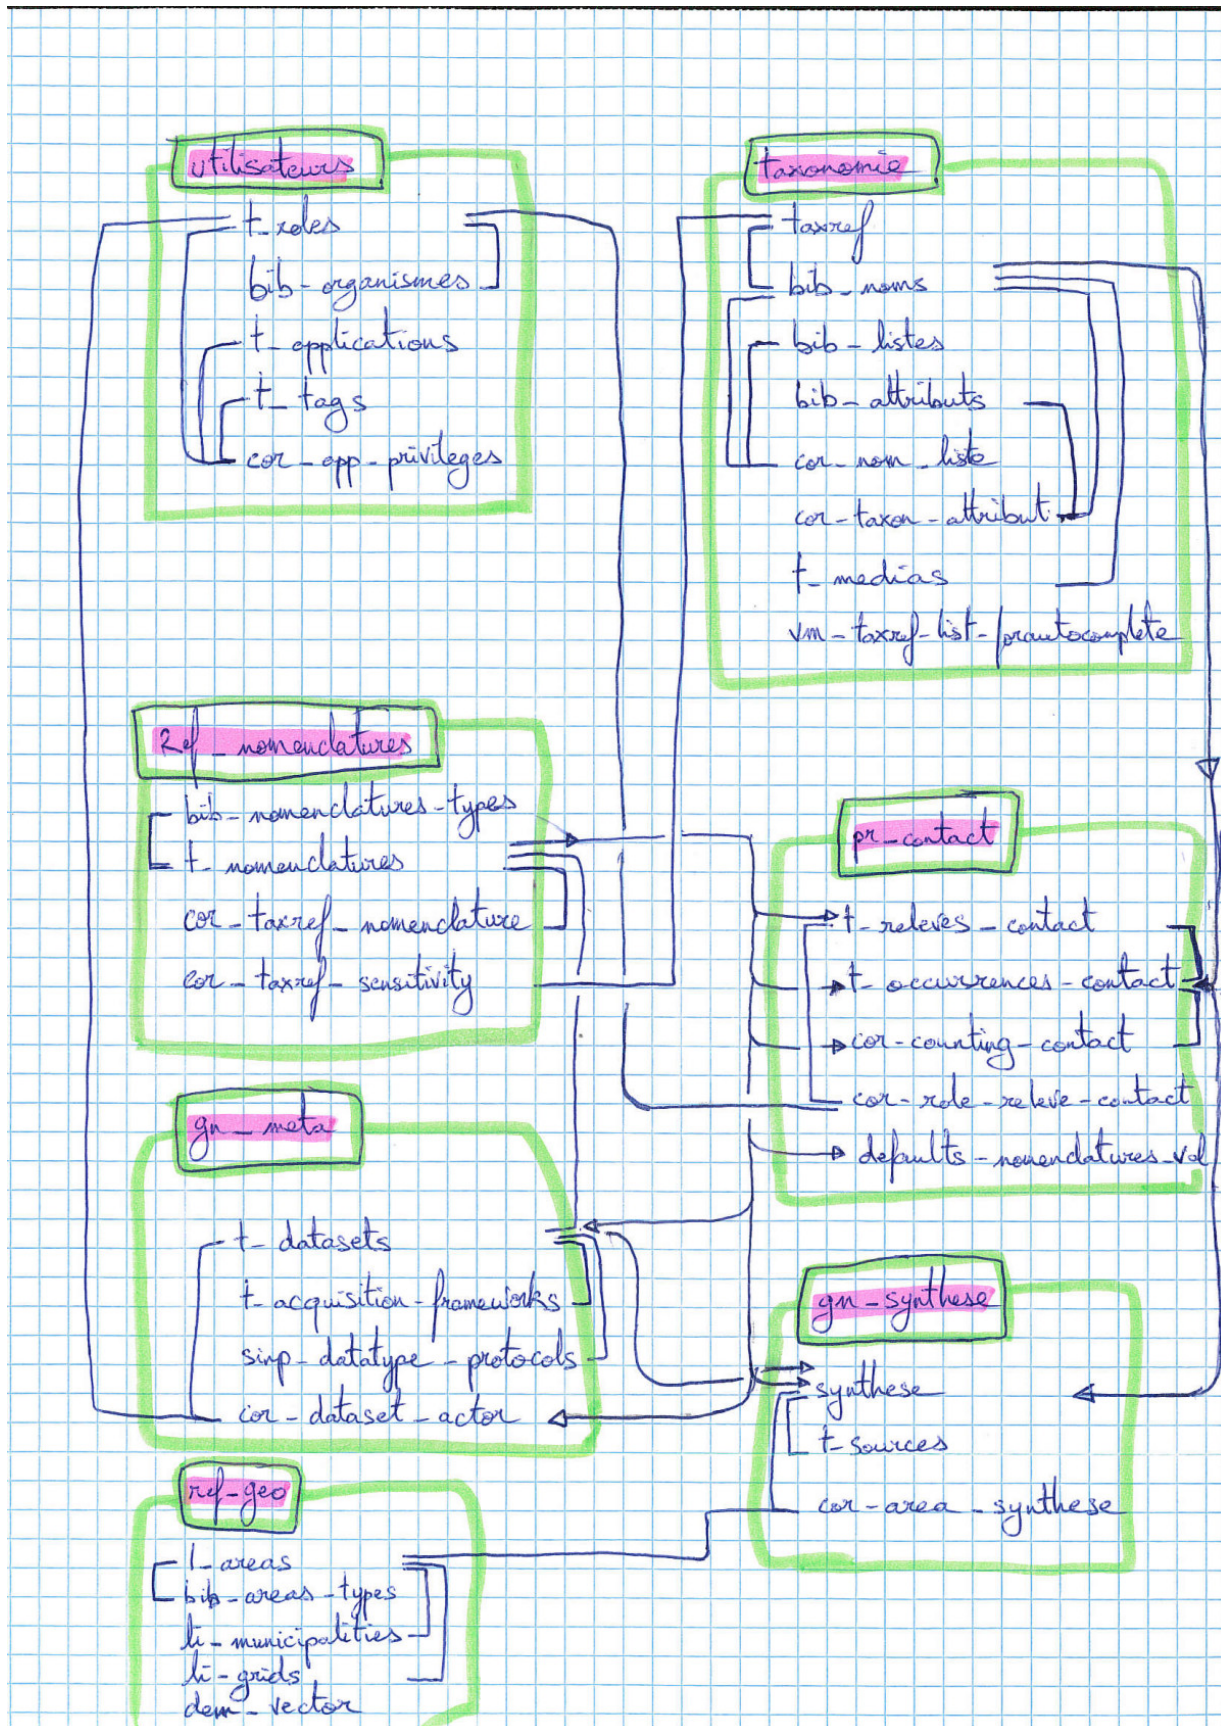 utilisateurs
t_roles
bib_organismes
t_applications
t_tags
cor_app_privileges
taxonomie
taxref
bib_noms
bib_listes
bib_attributs
cor_nom_liste
cor_taxon_attribut
t_medias
vm_taxref_list_forautocomplete
Ref_nomenclatures
bib_nomenclatures_types
t_nomenclatures
cor_taxref_nomenclature
cor_taxref_sensitivity
pr_contact
t_releves_contact
t_occurrences_contact
cor_counting_contact
cor_role_releve_contact
defaults_nomenclatures_val
gn_meta
t_datasets
t_acquisition_frameworks
sinp_datatype_protocols
cor_dataset_actor
gn_synthese
synthese
t_sources
cor_area_synthese
ref_geo
l_areas
bib_areas_types
li_municipalities
li_grids
dem_vector